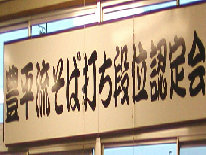 豊平流そば打ち段位認定会